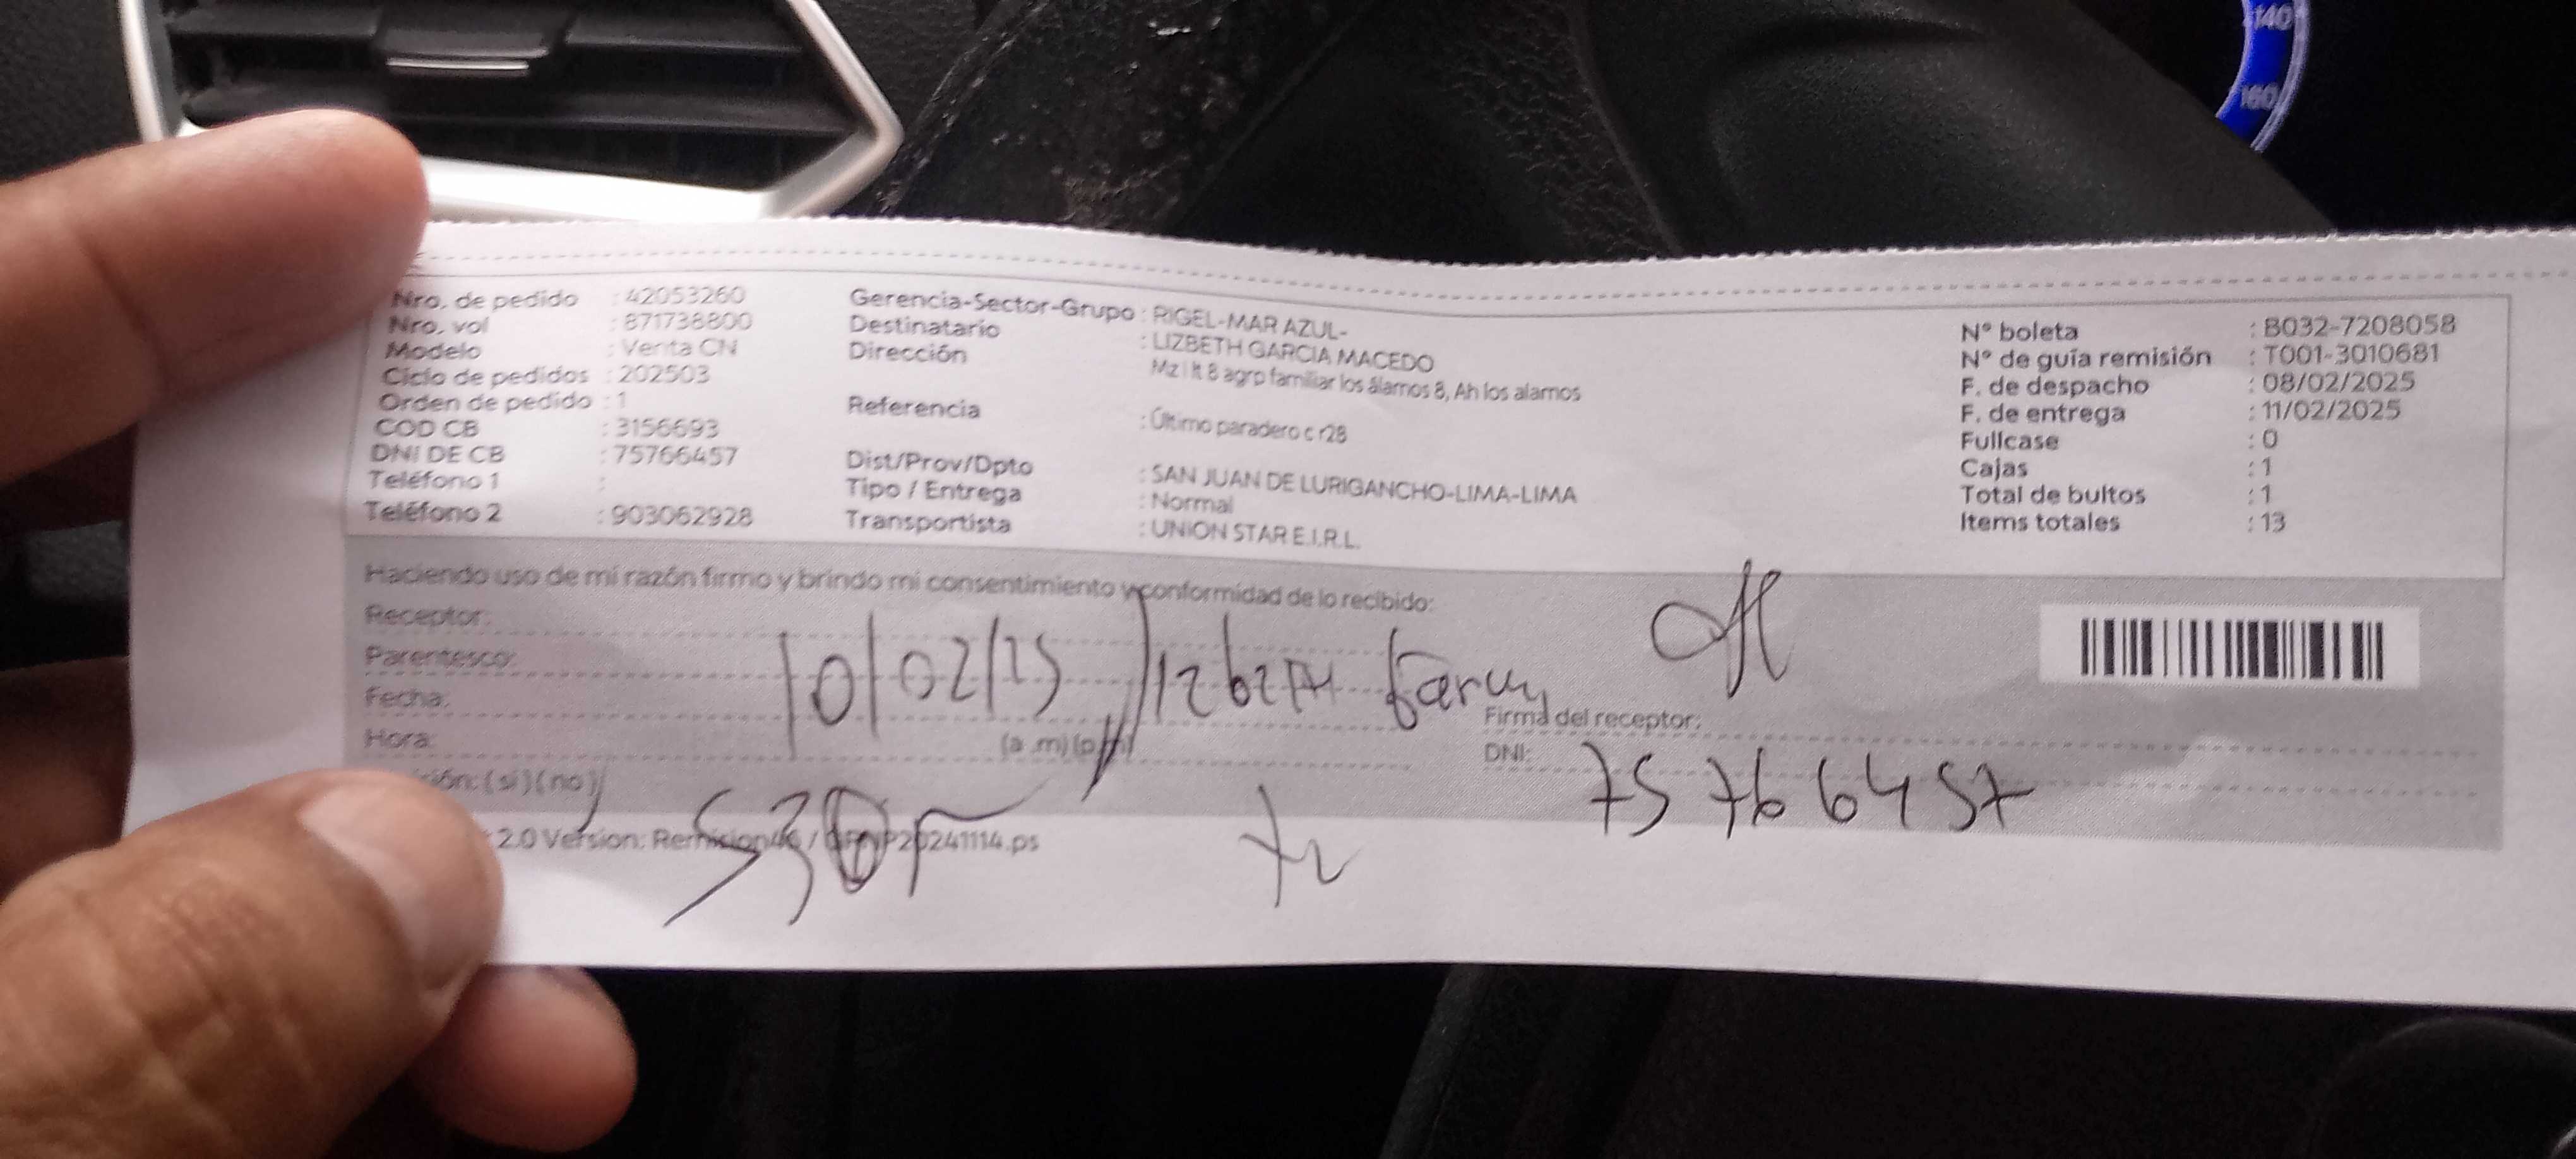 140
160
Nro. de pedido : 42053260
Nro. vol : 871738800
Modelo : Venta CN
Ciclo de pedidos : 202503
Orden de pedido : 1
COD CB : 3156693
DNI DE CB : 75766457
Teléfono 1 :
Teléfono 2 : 903062928
Gerencia-Sector-Grupo : RIGEL-MAR AZUL-
Destinatario : LIZBETH GARCIA MACEDO
Dirección Mz I lt 8 agrp familiar los álamos 8, Ah los alamos
Referencia : Último paradero c r28
Dist/Prov/Dpto : SAN JUAN DE LURIGANCHO-LIMA-LIMA
Tipo / Entrega : Normal
Transportista : UNION STAR E.I.R.L.
N° boleta : B032-7208058
N° de guía remisión : T001-3010681
F. de despacho : 08/02/2025
F. de entrega : 11/02/2025
Fullcase : 0
Cajas : 1
Total de bultos : 1
Items totales : 13
Haciendo uso de mi razón firmo y brindo mi consentimiento y conformidad de lo recibido:
Receptor:
Parentesco:
10/02/25
Fecha:
Firma del receptor:
Hora: (a .m) (p.m)
DNI: 75766457
ción: (si) (no)
530
2.0 Version: Remision46 / 20241114.ps